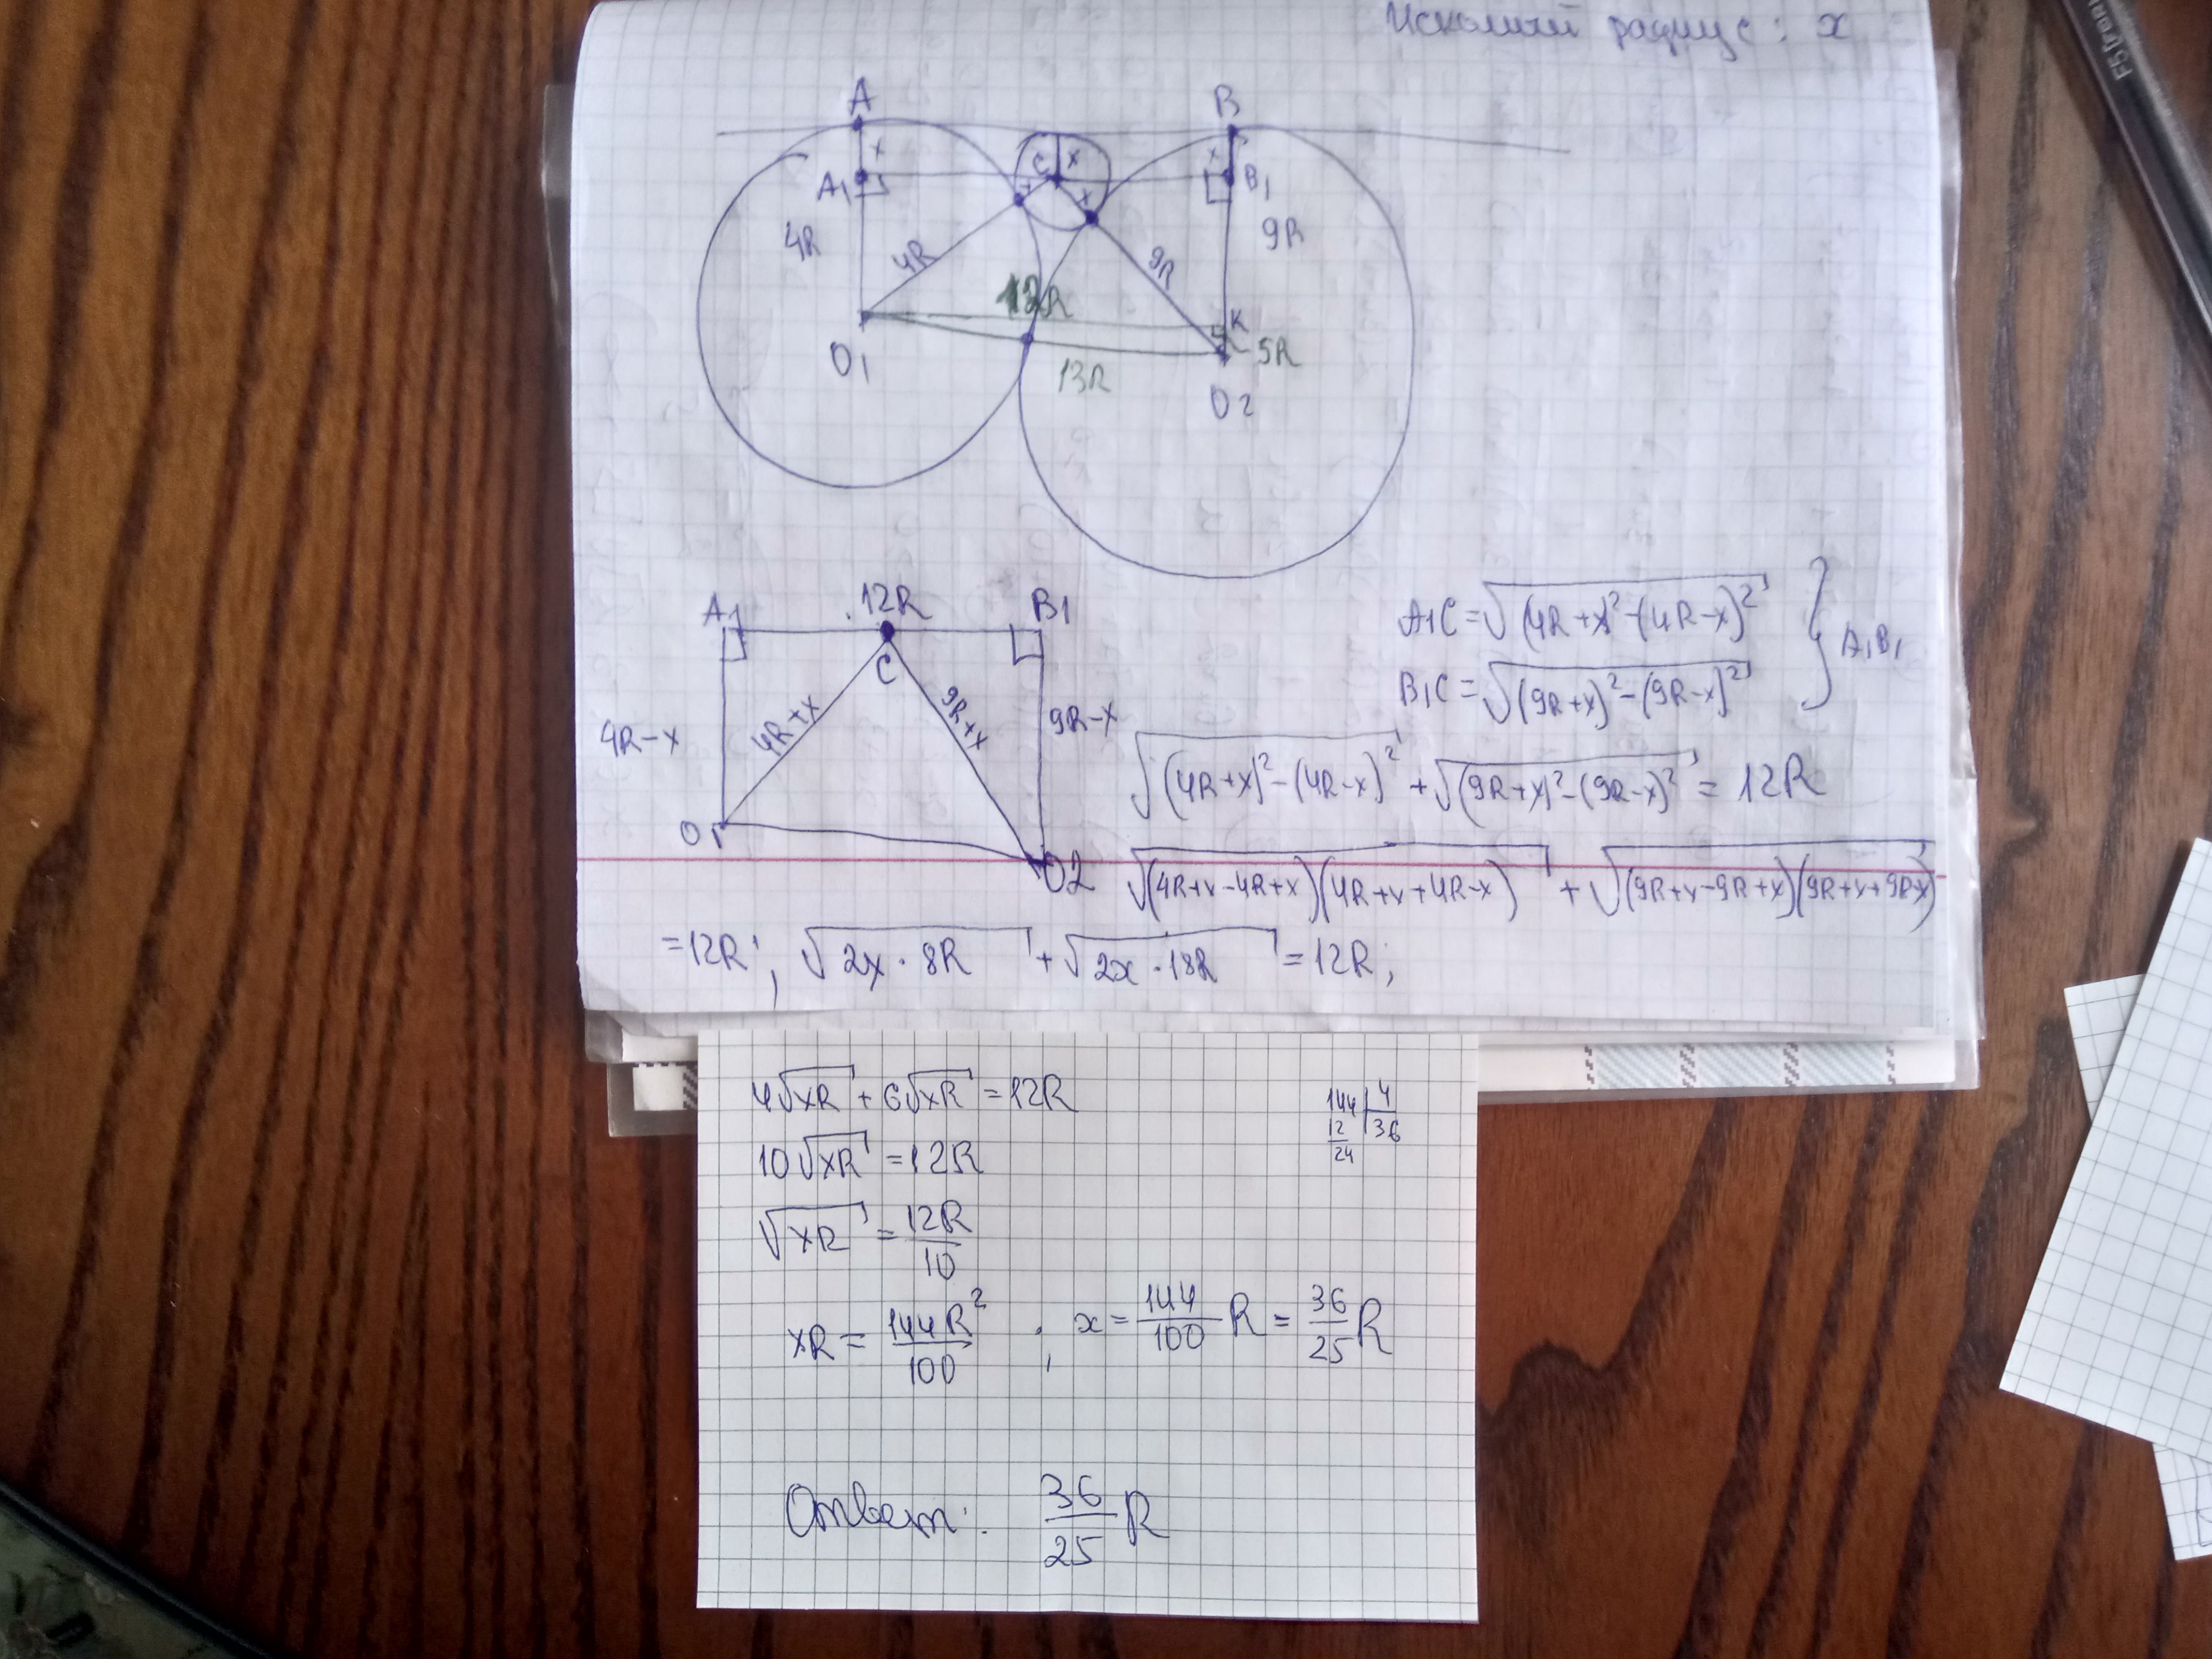 Искомый радиус: x
A B
x C x x
A1 B1
4R 4R x x 9R 9R
12R K
O1 5R
13R
O2
A1 12R B1
C
4R-x 4R+x 9R+x 9R-x
O1 O2
A1C = √((4R+x)²-(4R-x)²)
B1C = √((9R+x)²-(9R-x)²) } A1B1
√((4R+x)²-(4R-x)²) + √((9R+x)²-(9R-x)²) = 12R
√((4R+x-4R+x)(4R+x+4R-x)) + √((9R+x-9R+x)(9R+x+9R-x))
=12R; √(2x·8R) + √(2x·18R) = 12R;
4√xR + 6√xR = 12R
144 | 4
12 36
24
10√xR = 12R
√xR = 12R/10
xR = 144R²/100 ; x = 144/100 R = 36/25 R
Ответ: 36/25 R